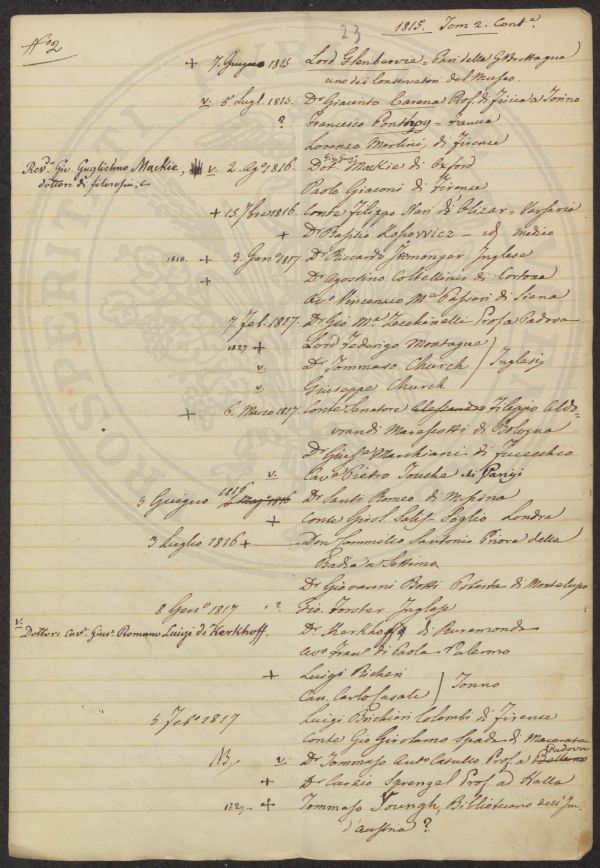 23
1815. Tom 2. Cont.e
N.o 2
+ 7. Giugno 1815 Lord Glenbervie = Pari della G. Brettagna
uno dei Conservatori del Museo.
v. 5 Lugl. 1815. Dr. Giacinto Carena Prof. di Fisica a Torino
? Francesco = Francia
Lorenzo di Firenze
Rev.do Gio. Guglielmo Mackie, v. 2 Ag.o 1816. Dot. Mackie di Oxford
dottore di filosofia, &
Paolo Giaconi di Firenze
+ 15 7bre 1816. Conte Filippo di Olizar = Varsavia
+ Dr. Basilio = id. medico
1818. + 3 Gen.o 1817 Dr. Riccardo Inglese
+ Dr. Agostino Coltellini di Cortona
Av.o Vincenzio M.a di Siena
7 Feb. 1817. Dr. Gio. M.a Zecchinelli Prof. a Padova
1827 + Lord Federigo Montague
v. Dr. Tommaso Church } Inglesi
v. Giuseppe Church
+ 6. Marzo 1817. Conte Senatore Alessandro Filippo Aldo-
vrandi Marescotti di Bologna
Dr. Gius.e Marchiani di Fucecchio
v. Cav.e Pietro di Parigi
3 Giugno 1816 Dr. Santi Romeo di Messina
+ Conte Girol. Salis Soglio Londra
3 Luglio 1816 + Don Santonis Priore della
Badia a Settimo
Dr. Giovanni Botti Potestà di Montelupo
8 Gen.o 1817 ? Gio. Forster Inglese
v. Dottore Cav.e Gius.e Romano Luigi de Kerkhoff. Dr. Kerkhoff di Ruremonde
Av.o Fran.o di Paola Palermo
+ Luigi Bicheri
Can. Carlo Casali } Torino
5 Feb.o 1817 Luigi Brichieri Colombi di Firenze
Conte Gio Girolamo Spada di Macerata
NB. v. Dr. Tommaso Ant.o Catullo Prof. a Belluno Padova
+ Dr. Curzio Sprengel Prof. ad Halla
1829 - + Tommaso Youngh, Bibliotecario dell'Im.
d'Austria ?